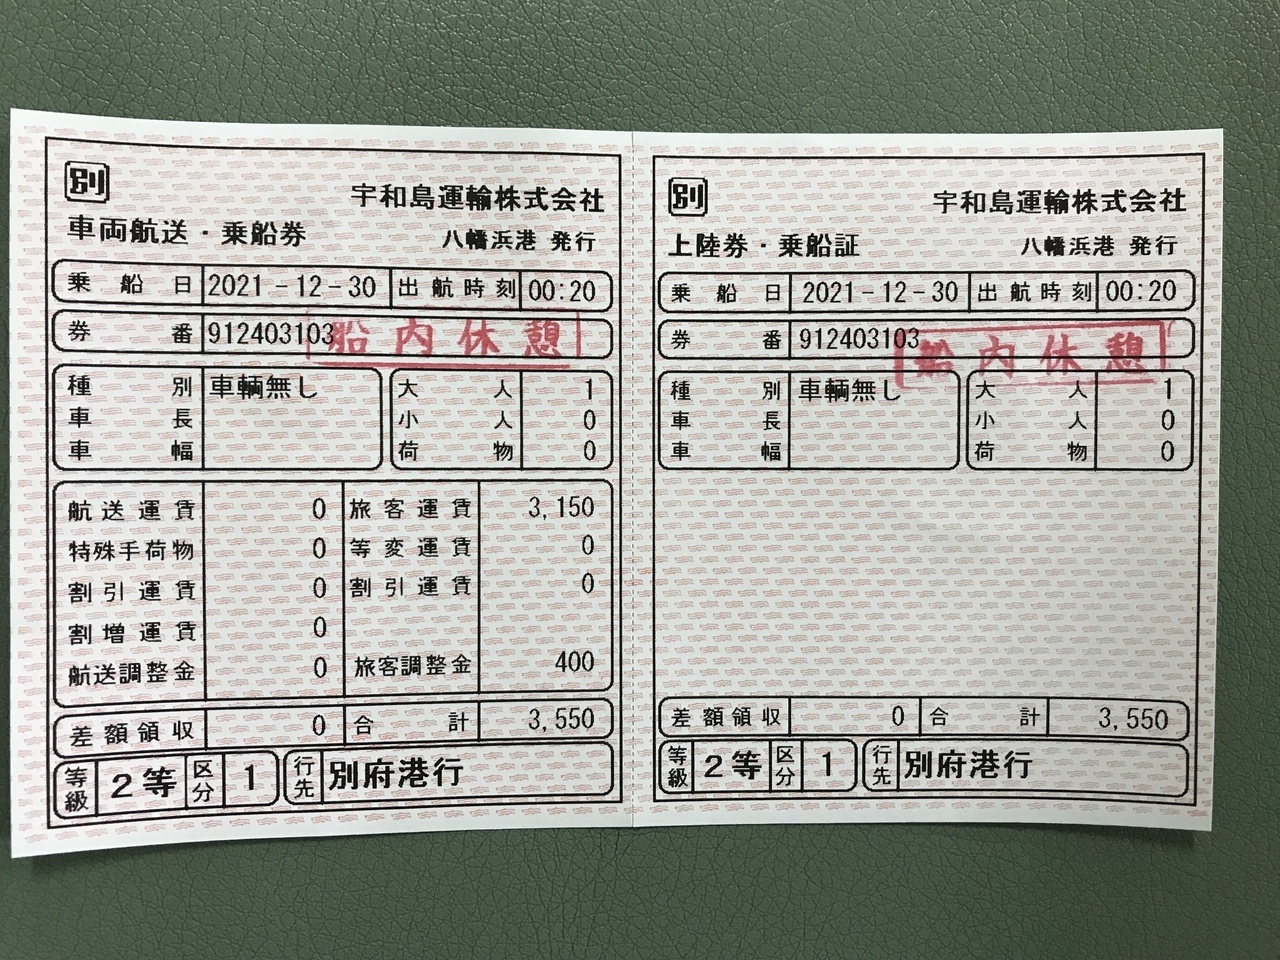 別
宇和島運輸株式会社
車両航送・乗船券 八幡浜港 発行
乗船日 2021-12-30 出航時刻 00:20
券番 912403103
船内休憩
種別 車輌無し 大人 1
車長 小人 0
車幅 荷物 0
航送運賃 0 旅客運賃 3,150
特殊手荷物 0 等変運賃 0
割引運賃 0 割引運賃 0
割増運賃 0
航送調整金 0 旅客調整金 400
差額領収 0 合計 3,550
等級 2等 区分 1 行先 別府港行
別
宇和島運輸株式会社
上陸券・乗船証 八幡浜港 発行
乗船日 2021-12-30 出航時刻 00:20
券番 912403103
船内休憩
種別 車輌無し 大人 1
車長 小人 0
車幅 荷物 0
差額領収 0 合計 3,550
等級 2等 区分 1 行先 別府港行